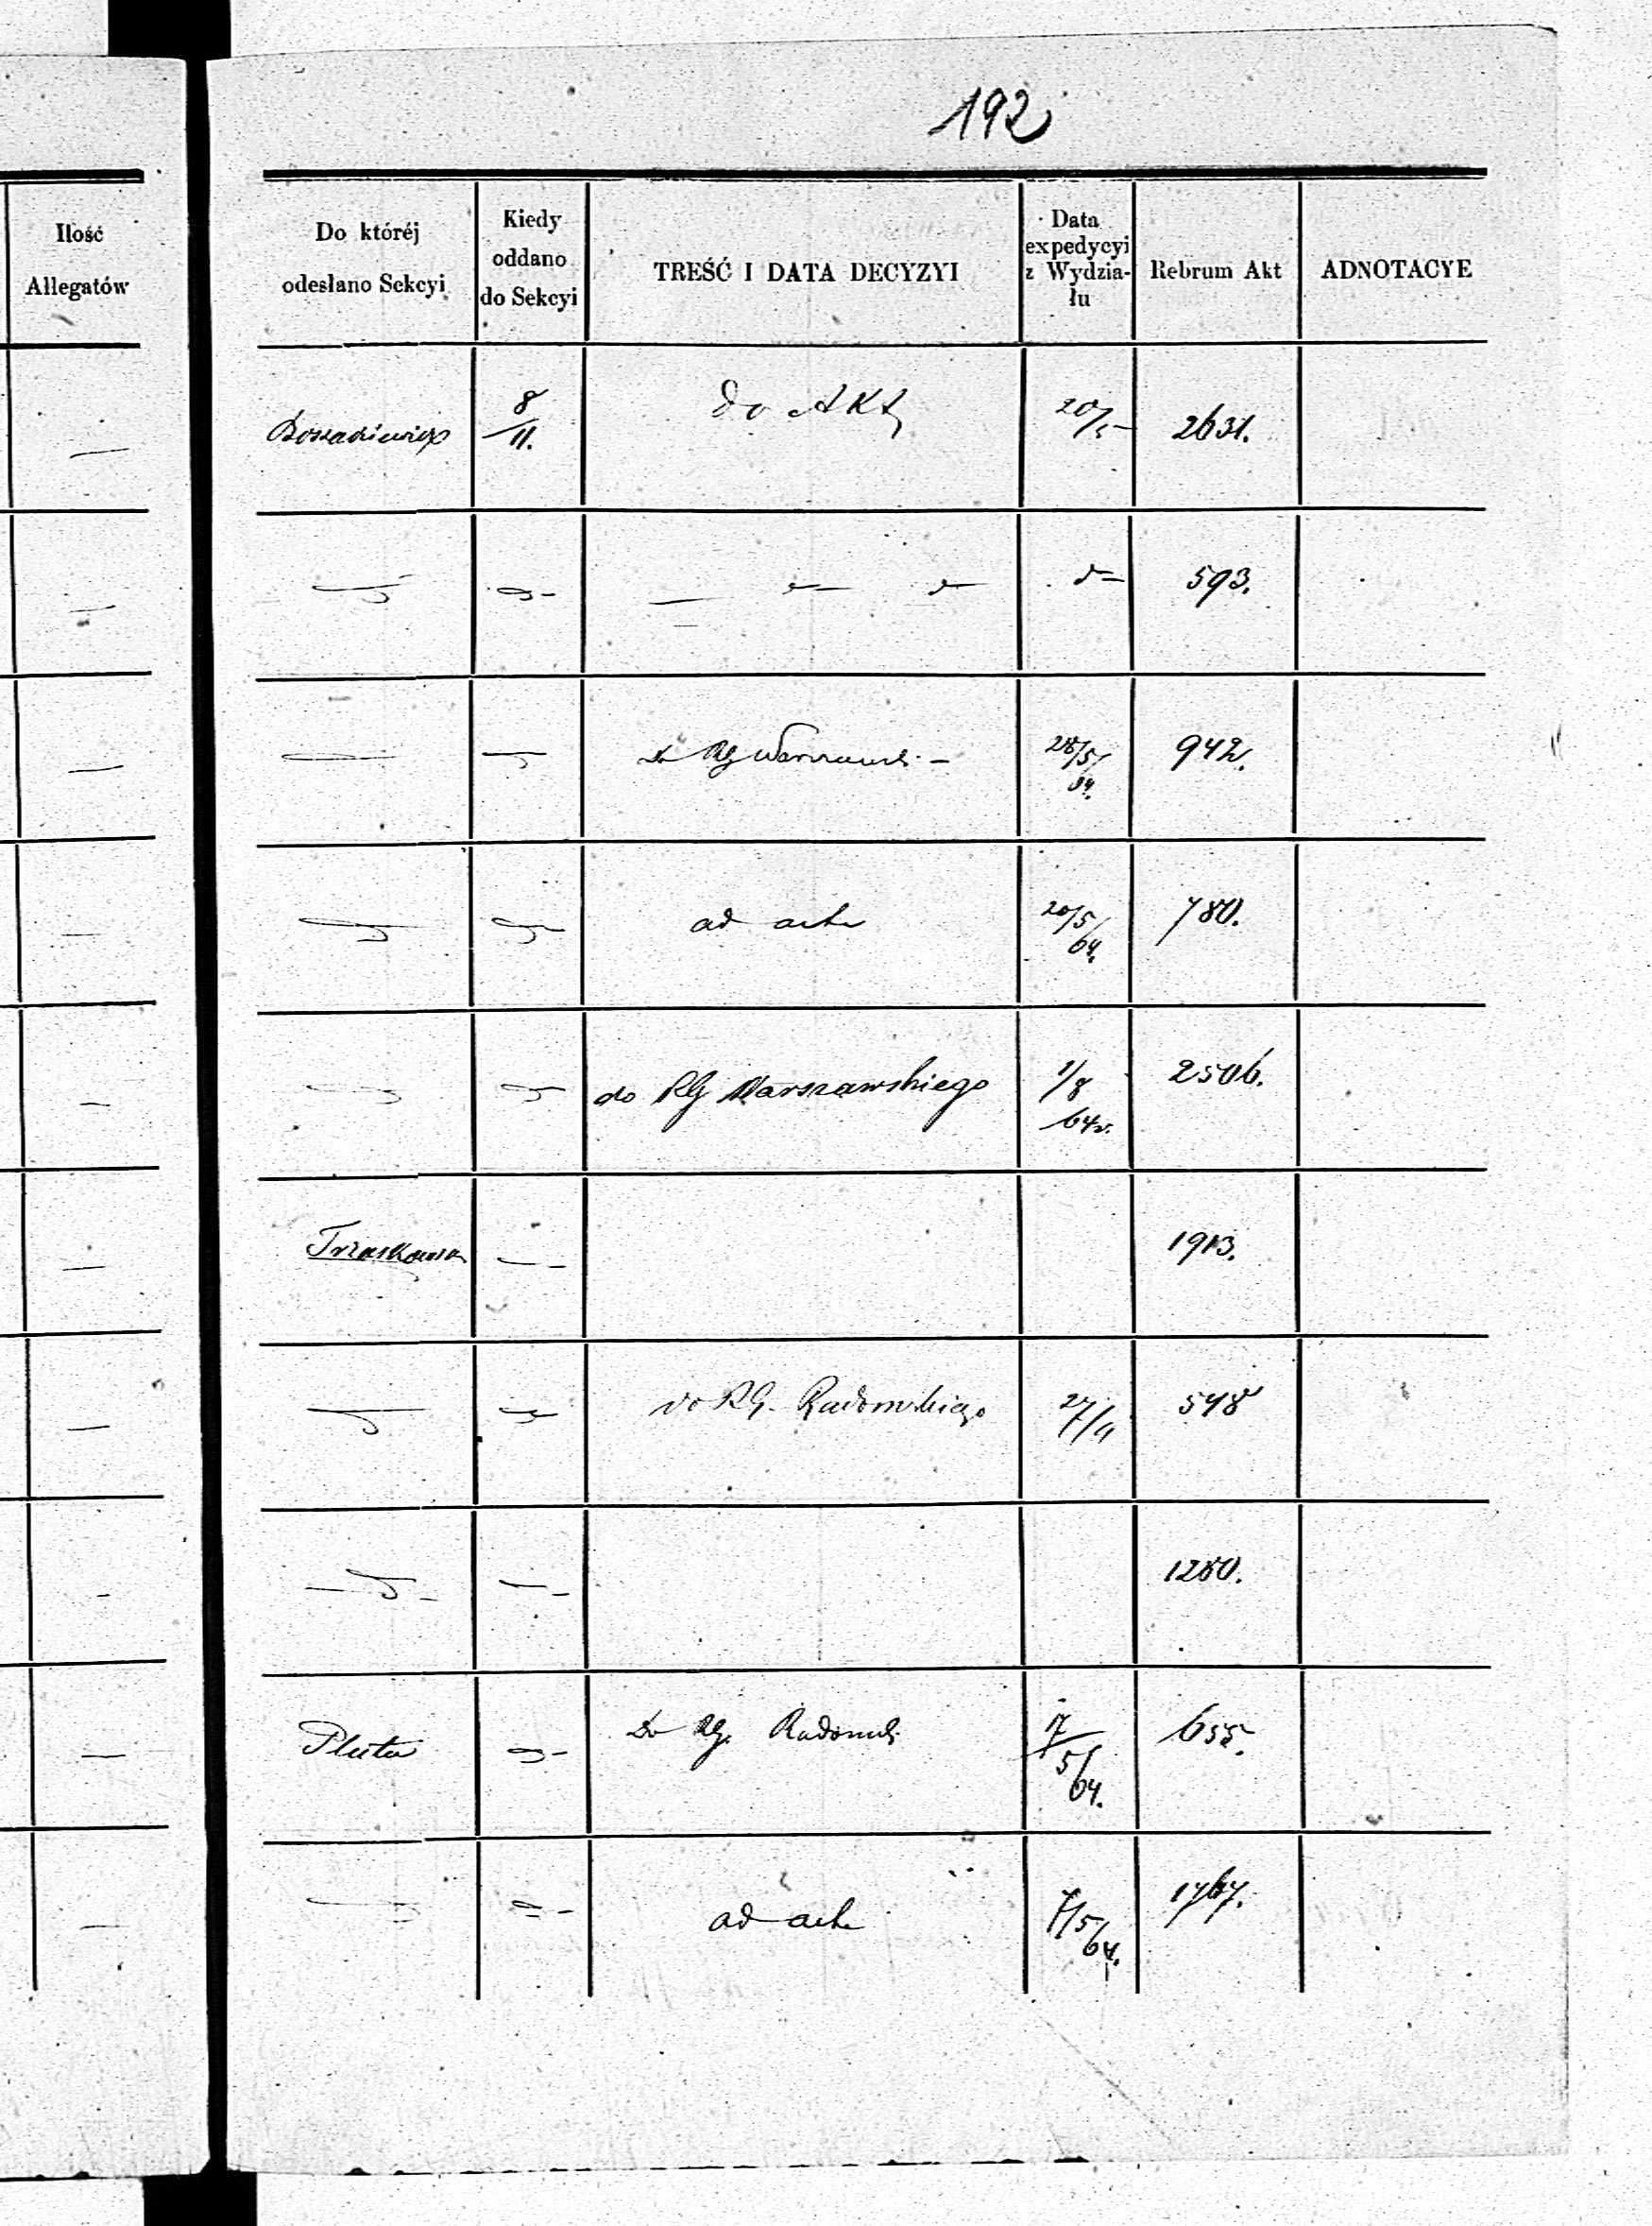 192
Ilość
Allegatów
Do któréj
odesłano Sekcyi
Kiedy
oddano
do Sekcyi
TREŚĆ I DATA DECYZYI
Data
expedycyi
z Wydzia-
łu
Rebrum Akt
ADNOTACYE
— 8/11. do Akt 20/5 2631.
— 593.
— do RG Warszawsk. – 28/5/64. 942.
— ad acta 20/5/64. 780.
— do RG Warszawskiego 1/8 64r. 2506.
— 1913.
— do RG. Radomskiego 27/11 548
— 1280.
— Pluta Do RG. Radomsk. 17/5/64. 655.
— ad acta 7/5/64. 1767.